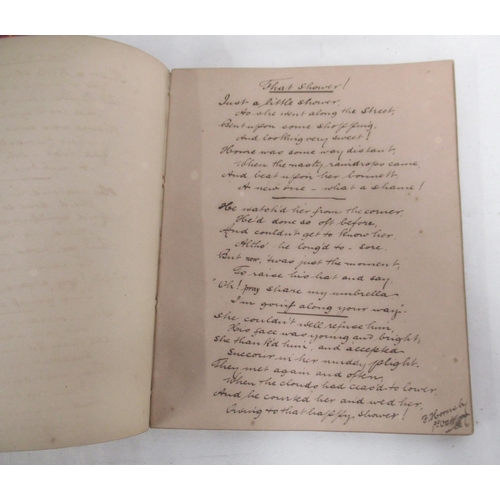 That Shower!
Just a little shower,
As she went along the Street,
Bent upon some shopping,
And looking very sweet!
Home was some way distant,
When the nasty raindrops came
And beat upon her bonnett
A new one – what a shame!
He watch'd her from the corner,
He'd done so oft before,
And couldn't get to know her
Altho' he long'd to – sore.
But now, 'twas just the moment,
To raise his hat and say.
"Oh! pray share my umbrella
I'm going along your way".
She couldn't well refuse him,
His face was young and bright,
She thank'd him, and accepted
Succour in her muddy plight.
They met again and often,
When the clouds had ceas'd to lower
And he courted her and wed her,
Owing to that happy shower!